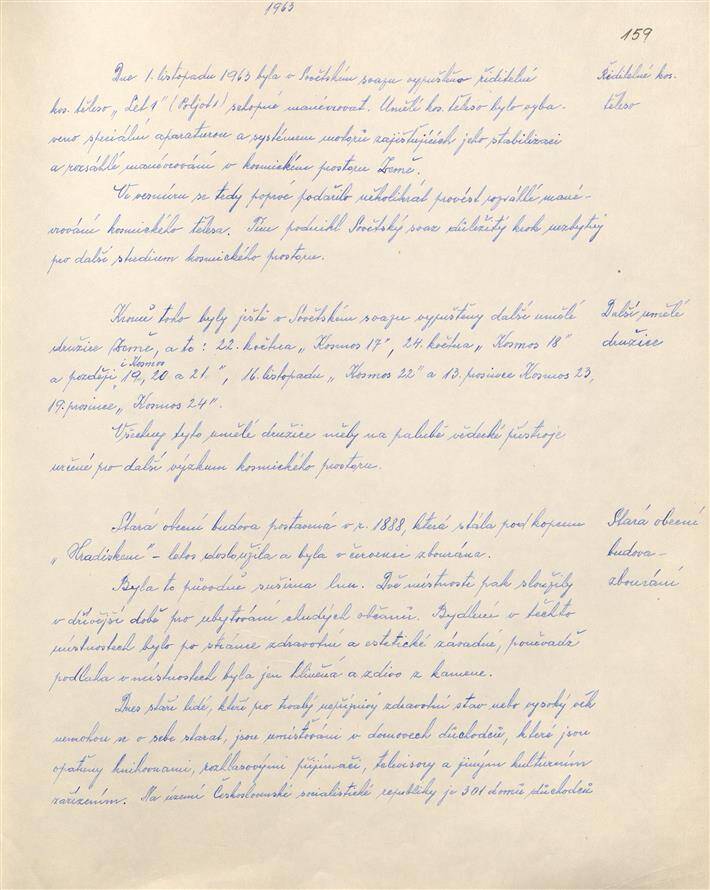 1963
159
Dne 1. listopadu 1963 byla v Sovětském svazu vypuštěno říditelné
Říditelné kos.
kos. těleso „Let 1" (Poljot 1) schopné manévrovat. Umělé kos. těleso bylo vyba-
těleso
veno speciální aparaturou a systémem motorů zajišťujících jeho stabilizaci
a rozsáhlé manévrování v kosmickém prostoru Země.
Ve vesmíru se tedy poprvé podařilo několikrát provést rozsáhlé mané-
vrování kosmického tělesa. Tím podnikl Sovětský svaz důležitý krok nezbytný
pro další studium kosmického prostoru.
Kromě toho byly ještě v Sovětském svazu vypuštěny další umělé
Další umělé
družice Země, a to: 22. května „Kosmos 17", 24. května „Kosmos 18"
družice
i Kosmos
a později 19, 20 a 21.", 16. listopadu „Kosmos 22" a 13. prosince Kosmos 23,
19. prosince „Kosmos 24".
Všechny tyto umělé družice měly na palubě vědecké přístroje
určené pro další výzkum kosmického prostoru.
Stará obecní budova postavená v r. 1888, která stála pod kopcem
Stará obecní
„Hradiskem" – letos dosloužila a byla v červenci zbourána.
budova-
Byla to původně sušírna lnu. Dvě místnosti pak sloužily
zbourání
v dřívější době pro ubytování chudých občanů. Bydlení v těchto
místnostech bylo po stránce zdravotní a estetické závadné, poněvadž
podlaha v místnostech byla jen hliněná a zdivo z kamene.
Dnes staří lidé, kteří pro trvalý nepříznivý zdravotní stav nebo vysoký věk
nemohou se o sebe starat, jsou umísťováni v domovech důchodců, které jsou
opatřeny knihovnami, rozhlasovými přijímači, televisory a jiným kulturním
zařízením. Na území Československé socialistické republiky je 301 domů důchodců